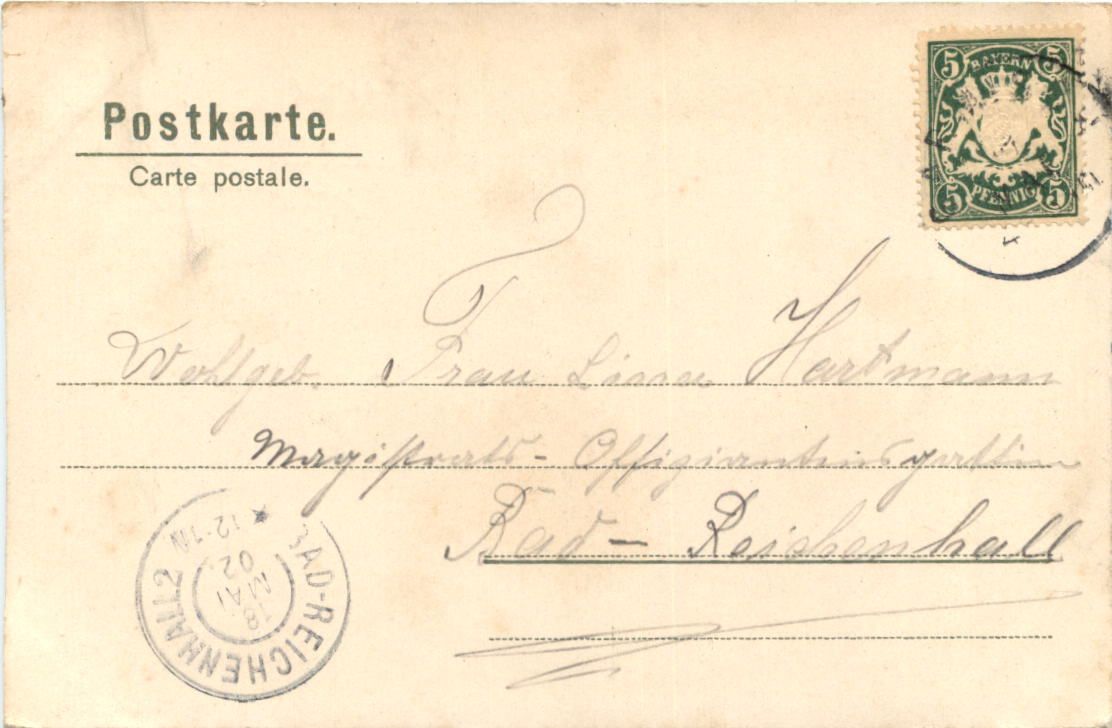 Postkarte.
Carte postale.
5 BAYERN 5
5 PFENNIG 5
Wohlgeb. Frau Lina Hartmann
Magistrats- Offiziantensgattin
Bad- Reichenhall
BAD-REICHENHALL 2
12-1 N
18
MAI
02